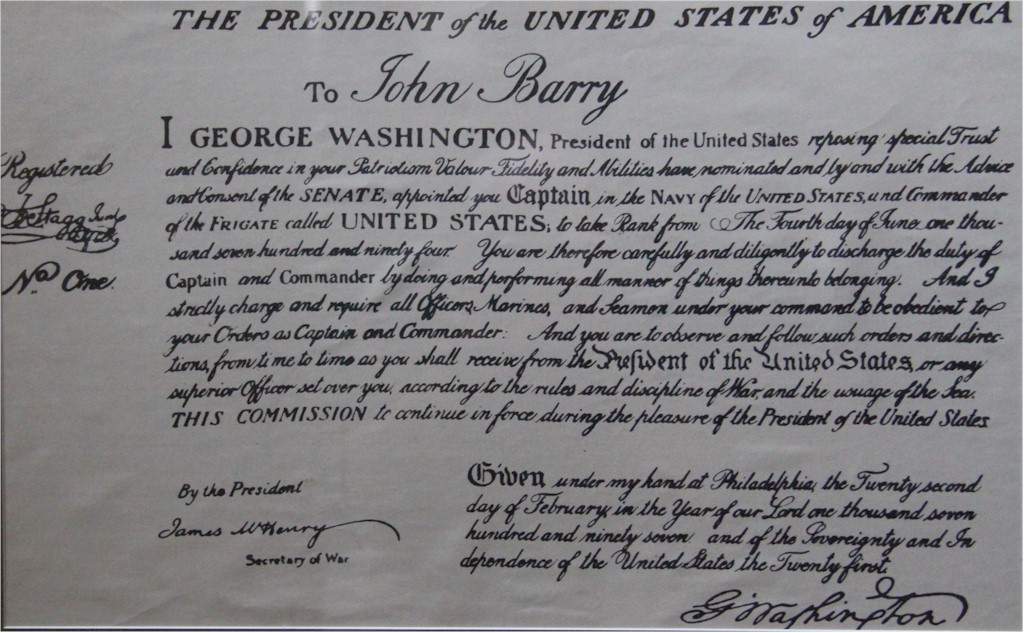 THE PRESIDENT of the UNITED STATES of AMERICA
To John Barry
I GEORGE WASHINGTON, President of the United States reposing special Trust
and Confidence in your Patriotism Valour Fidelity and Abilities have nominated and by and with the Advice
and Consent of the SENATE, appointed you Captain in the NAVY of the UNITED STATES, and Commander
of the FRIGATE called UNITED STATES; to take Rank from The Fourth day of June one thou-
sand seven hundred and ninety four. You are therefore carefully and diligently to discharge the duty of
Captain and Commander by doing and performing all manner of things thereunto belonging. And I
strictly charge and require all Officers, Marines, and Seamen under your command to be obedient to
your Orders as Captain and Commander: And you are to observe and follow such orders and direc-
tions, from time to time as you shall receive from the President of the United States, or any
superior Officer set over you, according to the rules and discipline of War, and the usuage of the Sea.
THIS COMMISSION to continue in force during the pleasure of the President of the United States
Registered
Stagg Jun
Clerk
No. One.
By the President
James McHenry
Secretary of War
Given under my hand at Philadelphia, the Twenty second
day of February, in the Year of our Lord one thousand seven
hundred and ninety seven and of the Sovereignty and In
dependence of the United States the Twenty first.
G. Washington